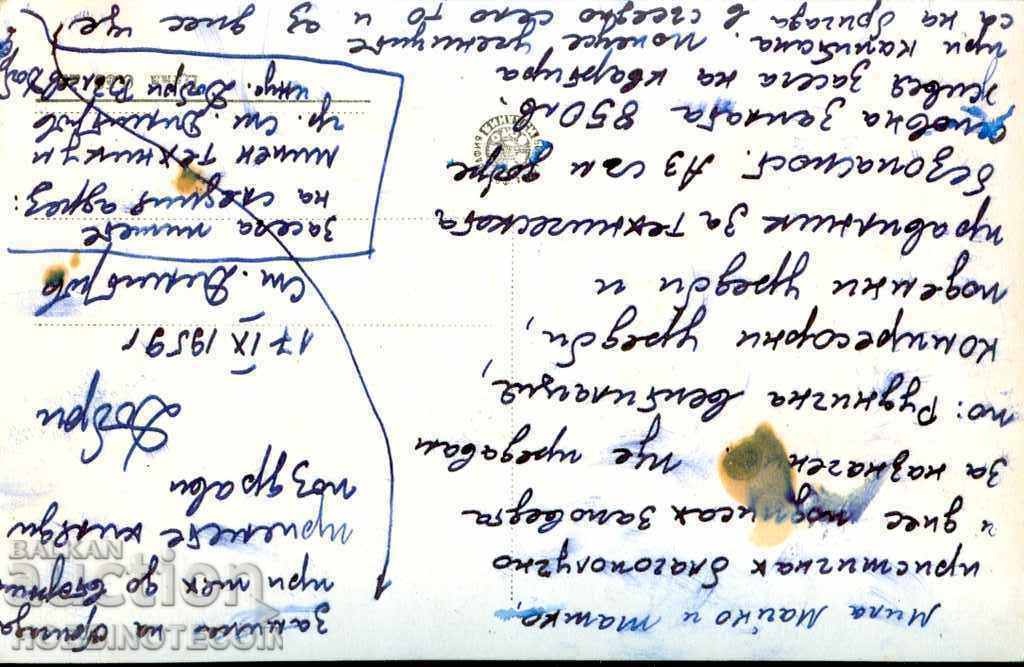 Мила Майко и татко,
пристигнах благополучно
и днес подписах заповедта
за назначен . Ще предавам
по: Руднична вентилация,
компресорни уредби,
подемни уредби и
правилник за техническата
безопасност. Аз съм добре
основна заплата 850 лв.
живея засега на квартира
при капитана. Понеже учениците
са на бригада в съседно село то и аз днес ще
замина на бригада
при тях до вторник
приемете хиляди
поздрави
Добри
17 IX 1959 г
Ст. Димитров
засега пишете
на следния адрес:
минен техникум
гр. Ст. Димитров
инж. Добри Вълчев
BALKAN
auction
HOBBINOTECOIN